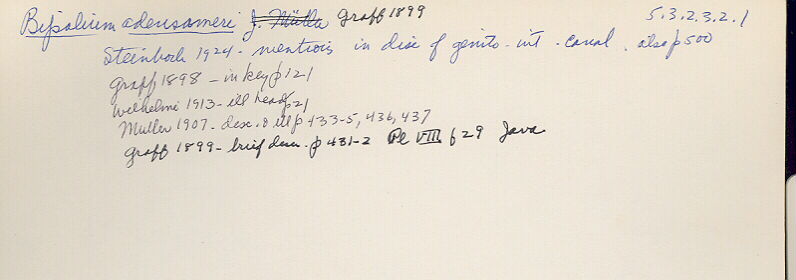 Bipalium adensameri J. Müller Graff 1899 5.3.2.3.2.1
Steinbock 1924 - mentions in disc of genito-int. canal. also p 500
Graff 1898 - in key p 121
Wilhelmi 1913 - ill head p 21
Müller 1907 - desc. & ill p 433-5, 436, 437
Graff 1899 - brief descr. p 431-2 Pl VIII f 29 Java